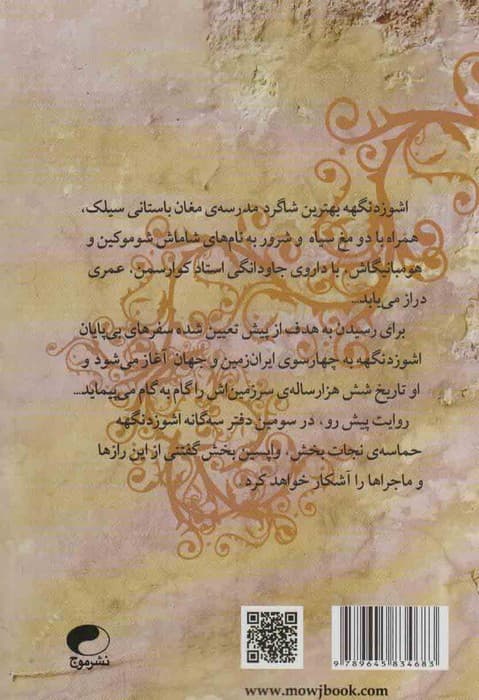 اشوزدنگهه بهترین شاگرد مدرسه‌ی مغان باستانی سیلک،
همراه با دو مغ سیاه و شرور به نام‌های شاماش شوموکین و
هومبانیگاش، با داروی جاودانگی استاد کوارسمن، عمری
دراز می‌یابد...
برای رسیدن به هدف از پیش تعیین شده سفرهای بی‌پایان
اشوزدنگهه به چهارسوی ایران‌زمین و جهان آغاز می‌شود و
او تاریخ شش هزارساله‌ی سرزمین‌اش را گام به گام می‌پیماید...
روایت پیش رو، در سومین دفتر سه‌گانه اشوزدنگهه
حماسه‌ی نجات بخش، واپسین بخش گفتنی از این رازها
و ماجراها را آشکار خواهد کرد.
نشر موج
9 789645 834683
www.mowjbook.com